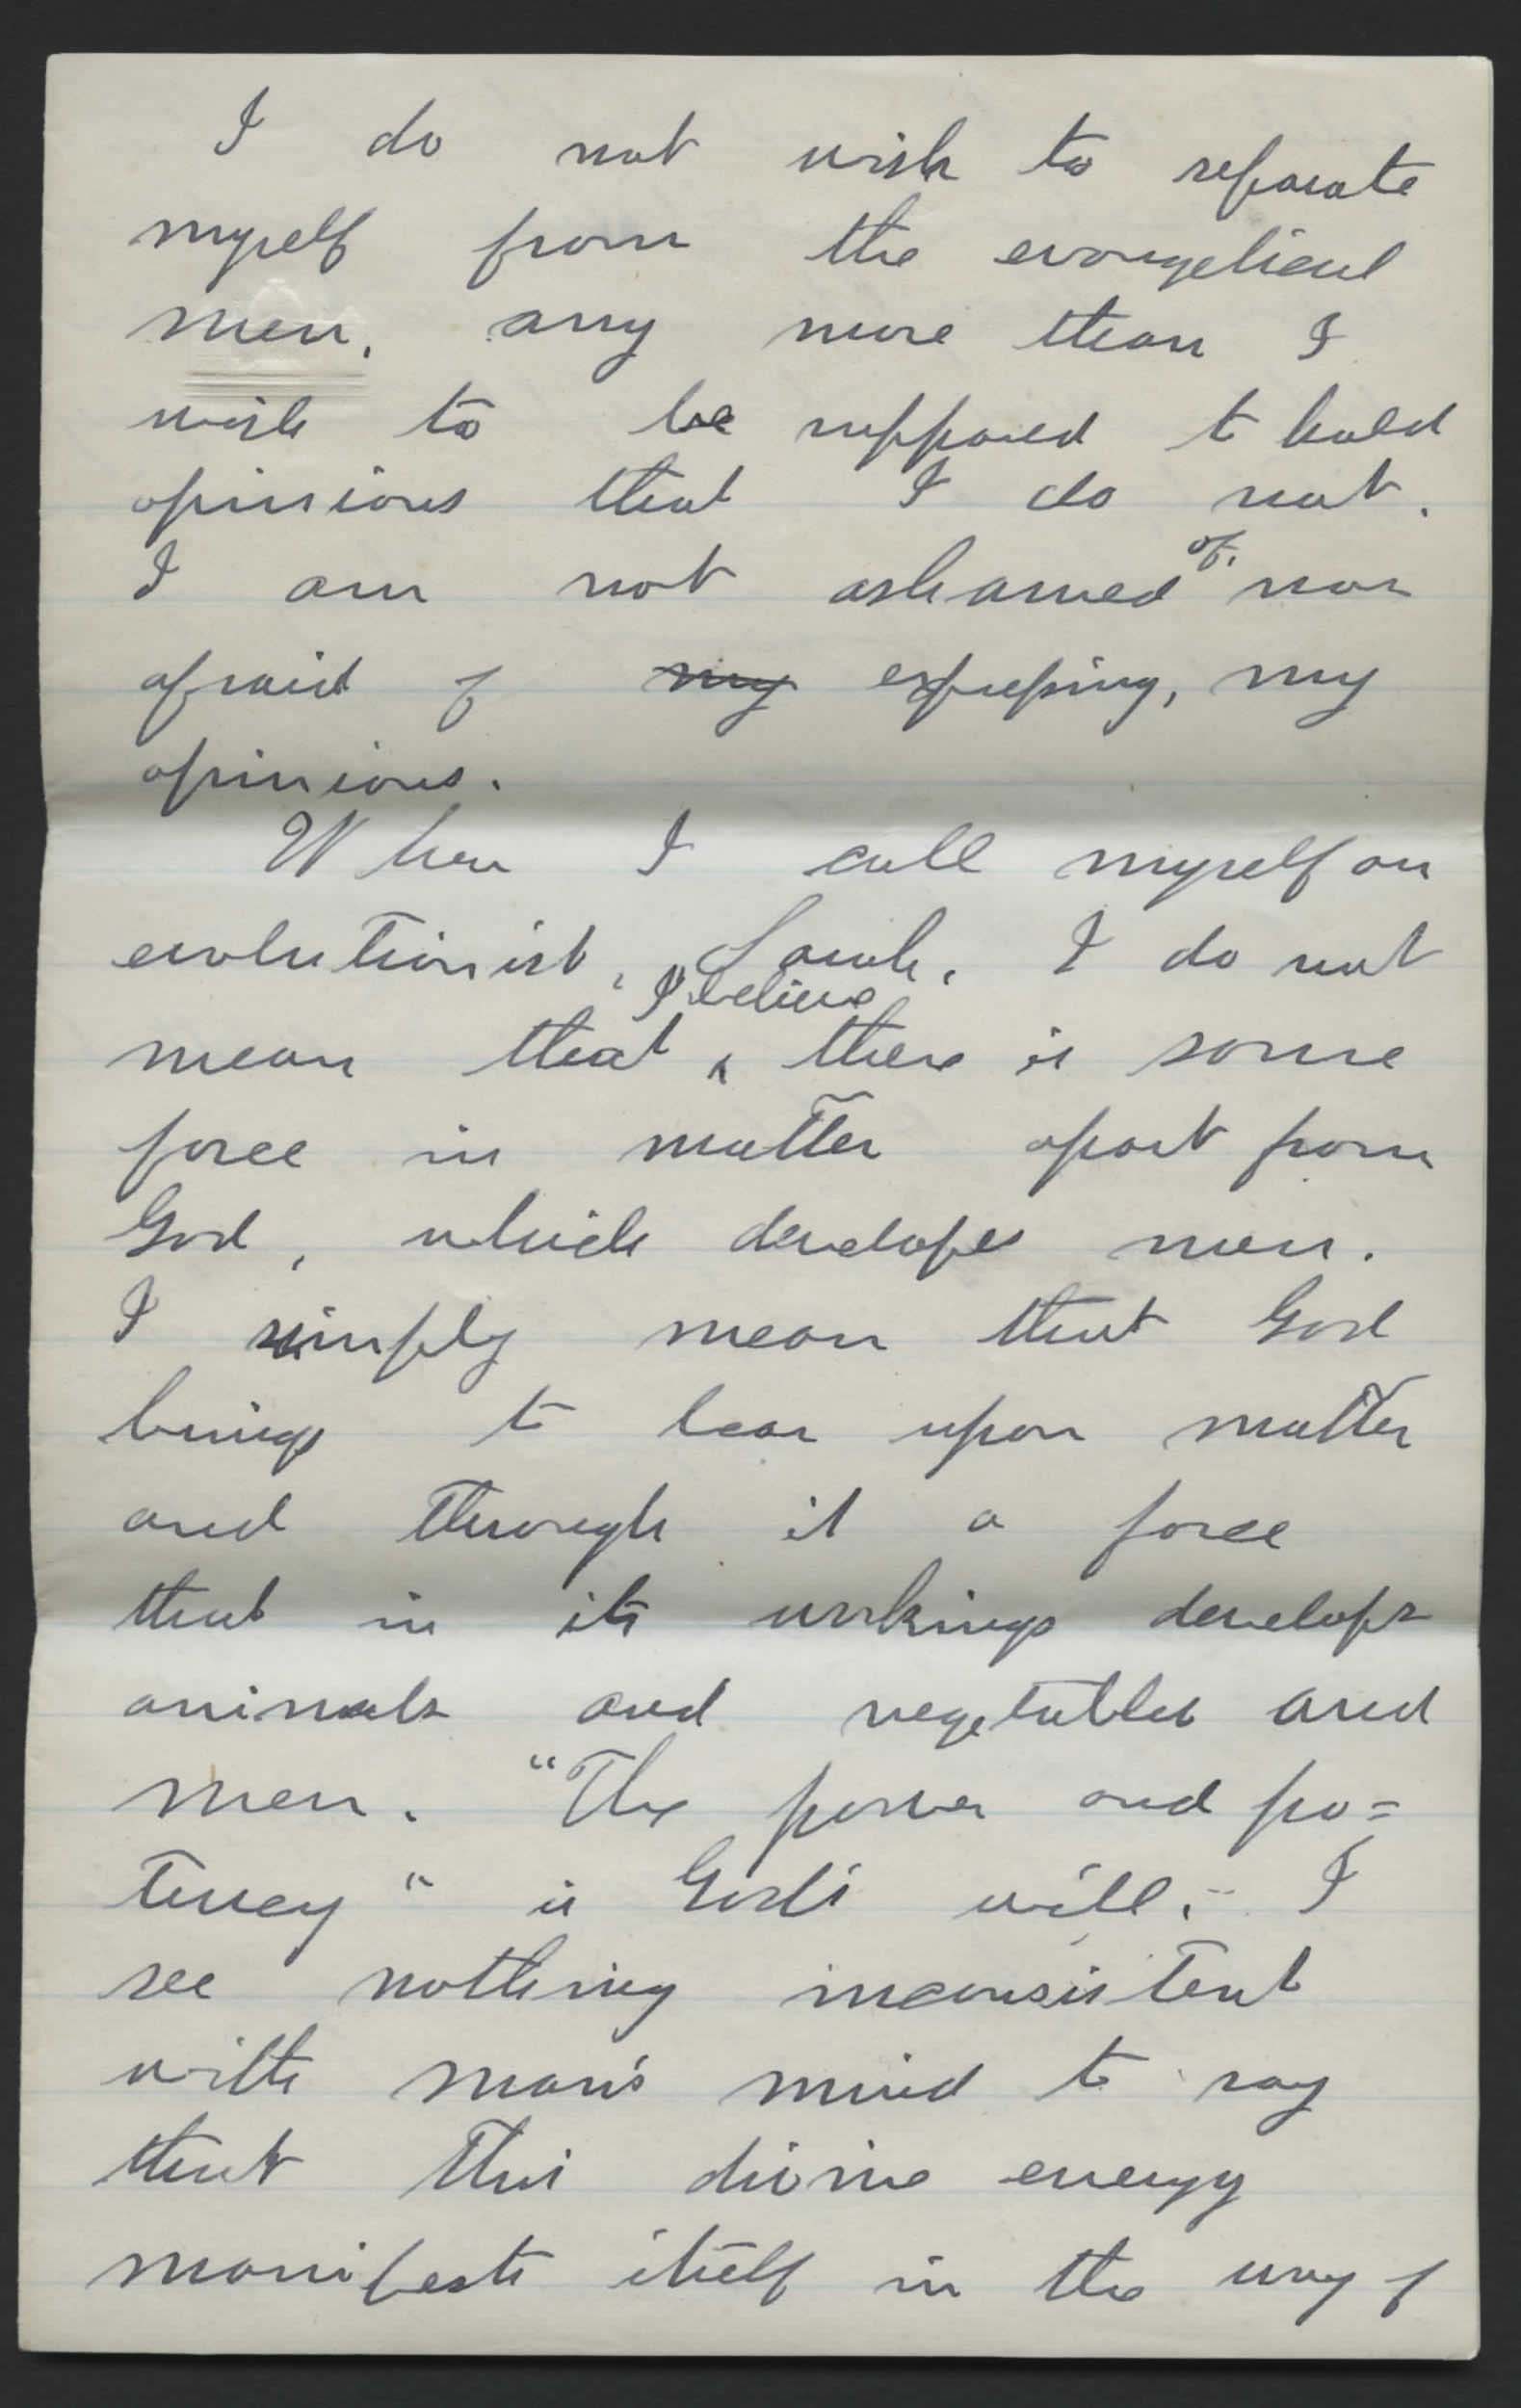 I do not wish to separate
myself from the evangelical
men, any more than I
wish to be supposed to hold
opinions that I do not.
of,
I am not ashamed nor
afraid of my expressing, my
opinions.
When I call myself an
evolutionist, Sarah, I do not
I believe
mean that ‸ there is some
force in matter apart from
God, which developes men.
I simply mean that God
brings to bear upon matter
and through it a force
that in its workings develops
animals and vegetables and
men. "The power and po=
tency" is God's will. I
see nothing inconsistent
with man's mind to say
that this divine energy
manifests itself in the way of